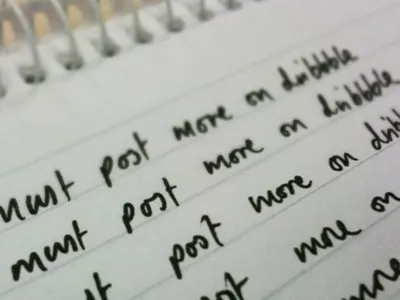 must post more on dribbble
must post more on dribbble
post more on dribb
post more on